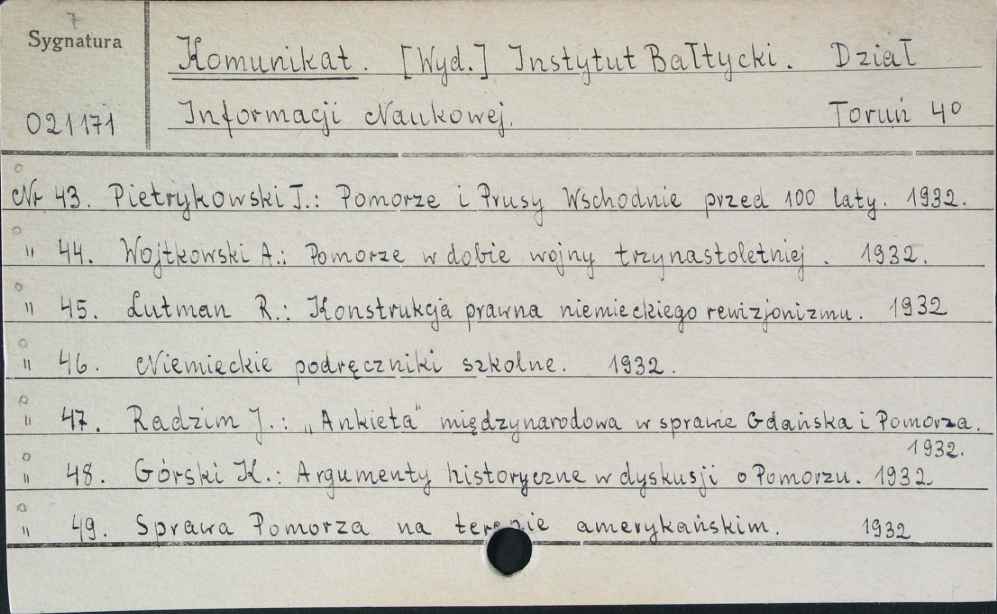 7
Sygnatura
021171
Komunikat. [Wyd.] Instytut Bałtycki. Dział
Informacji Naukowej. Toruń 4°
Nr 43. Pietrykowski T.: Pomorze i Prusy Wschodnie przed 100 laty. 1932.
" 44. Wojtkowski A.: Pomorze w dobie wojny trzynastoletniej. 1932.
" 45. Lutman R.: Konstrukcja prawna niemieckiego rewizjonizmu. 1932
" 46. Niemieckie podręczniki szkolne. 1932.
" 47. Radzim J.: „Ankieta" międzynarodowa w sprawie Gdańska i Pomorza.
1932.
" 48. Górski K.: Argumenty historyczne w dyskusji o Pomorzu. 1932
" 49. Sprawa Pomorza na terenie amerykańskim. 1932